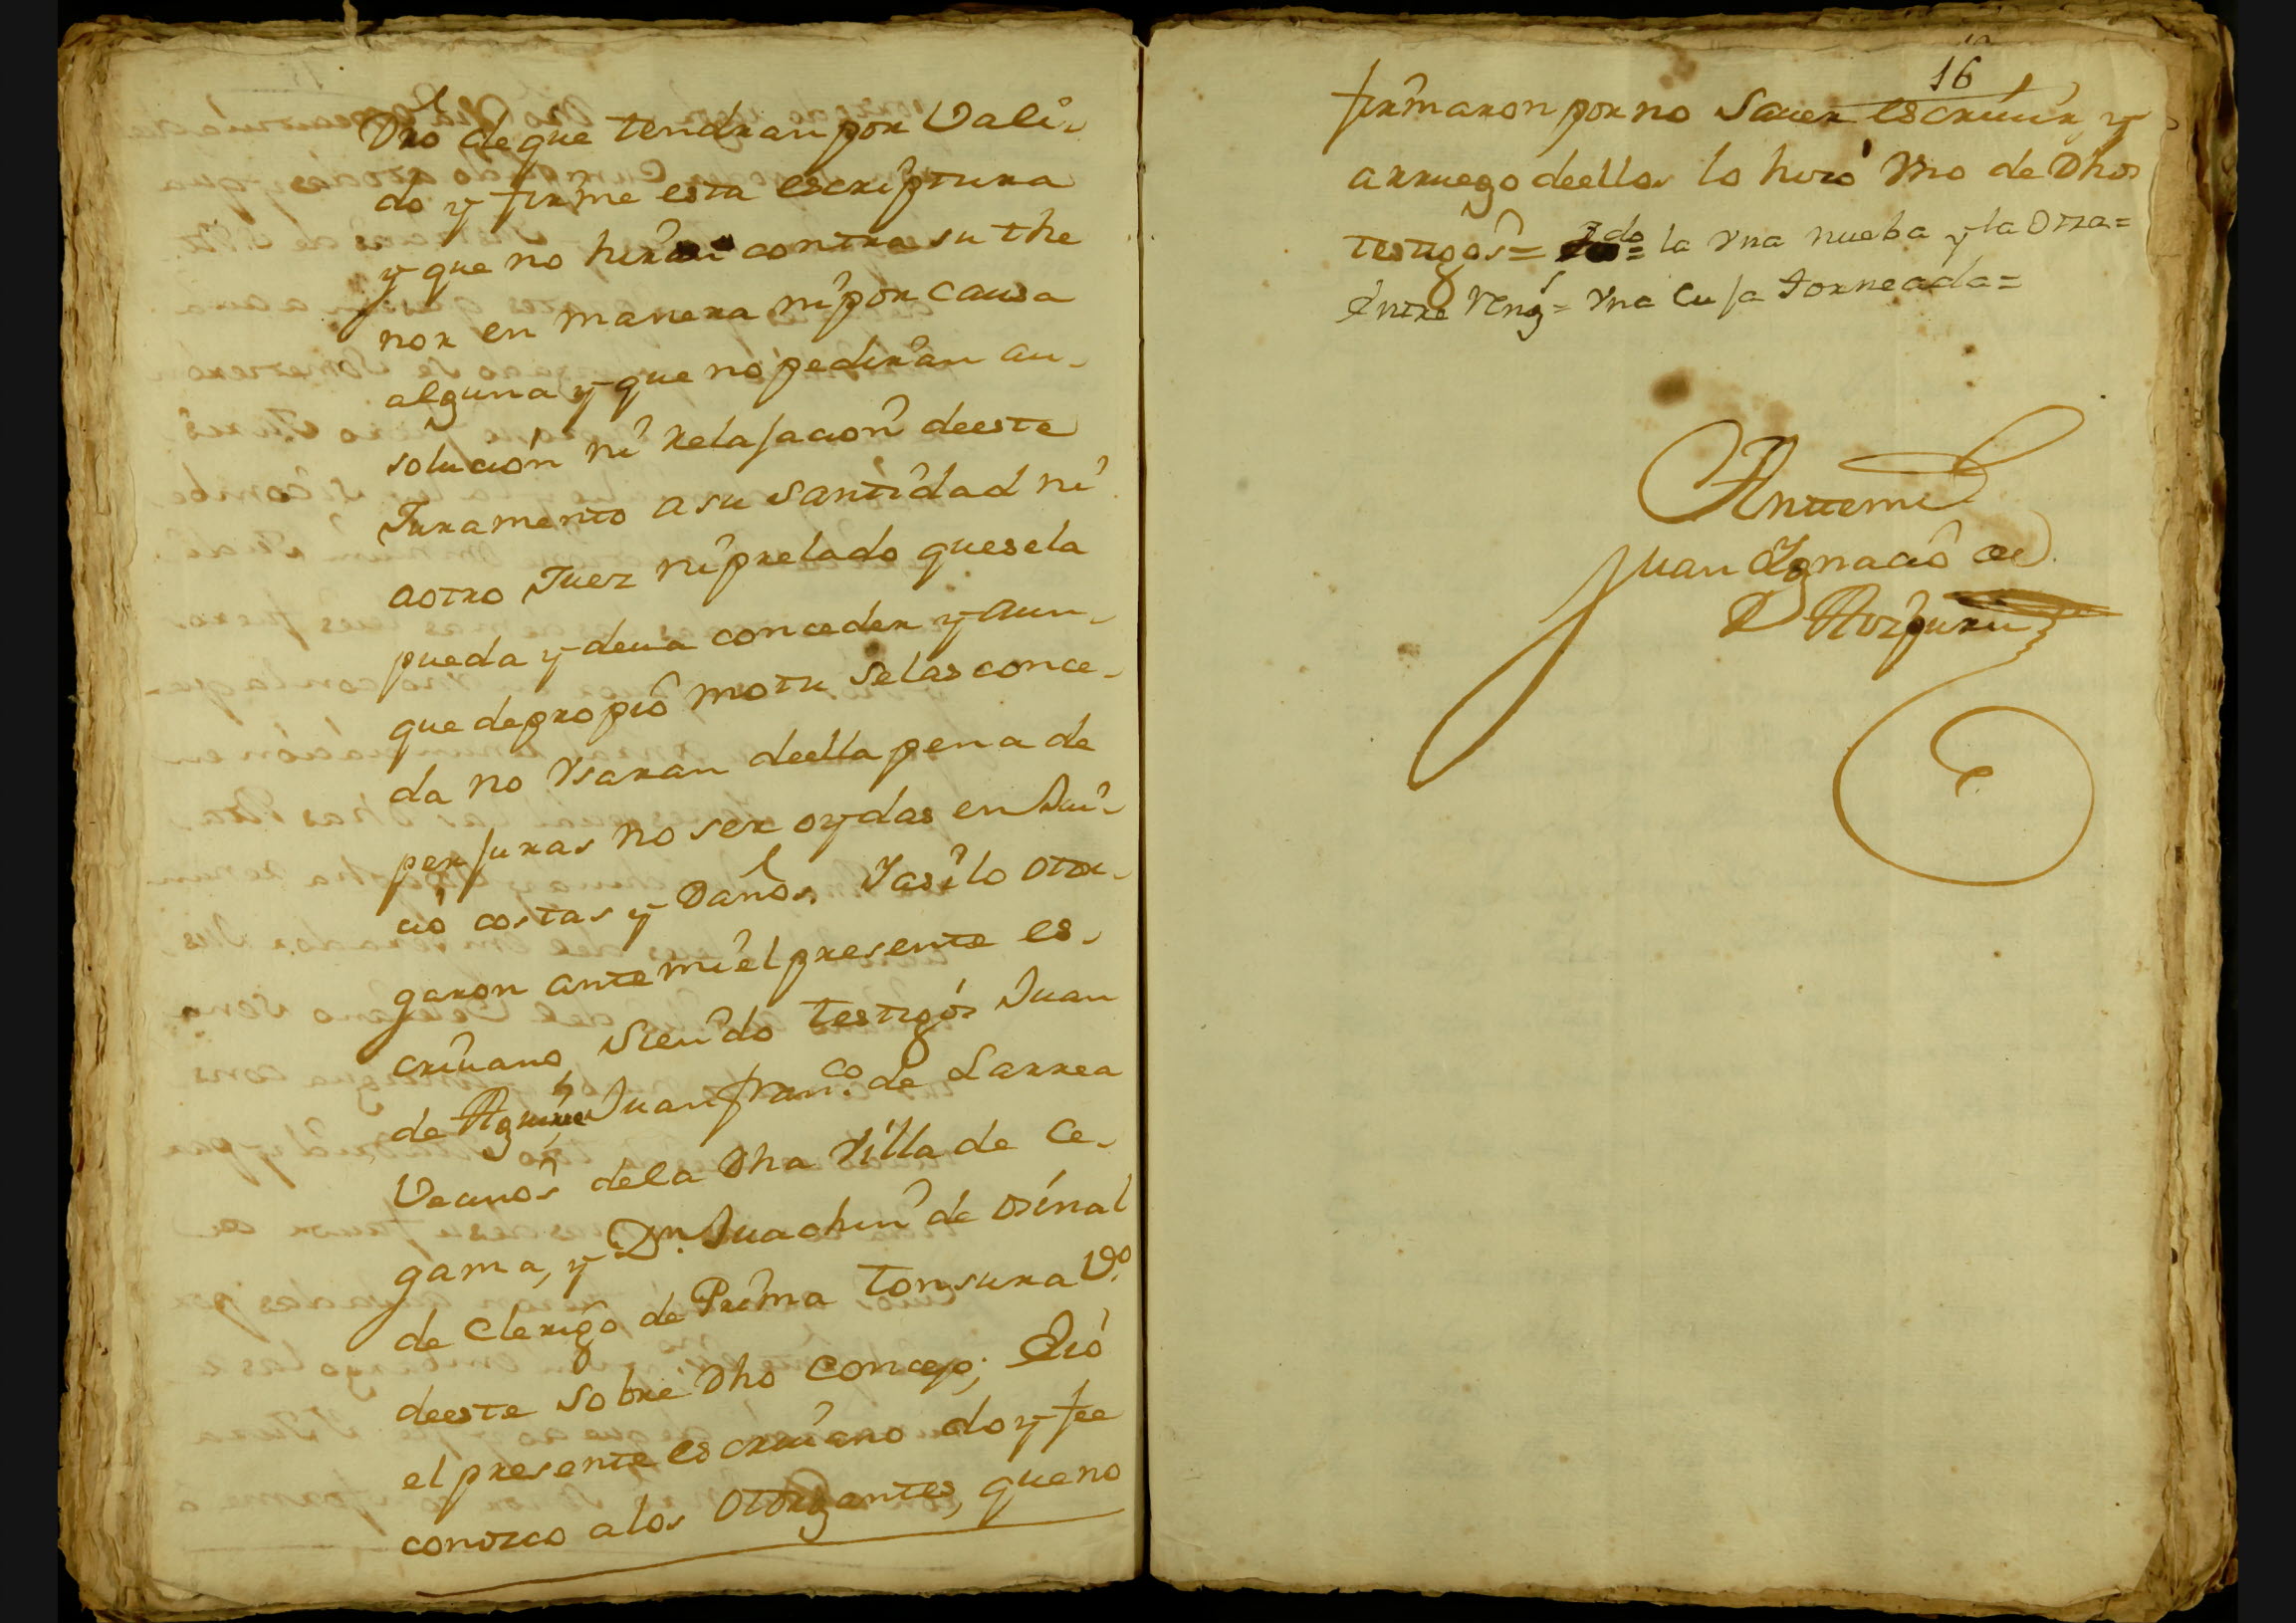 Dro de que tendran por Vali-
do y firme esta escriptura
y que no hiran contra su the
nor en manera ni por causa
alguna y que no pediran au-
solucion ni relajacion deeste
Juramento a su santidad ni
aotro Juez ni prelado quesela
pueda y deua conceder y aun-
que de propio motu selas conce-
da no Vsaran deella pena de
perjuras no ser oydas en Jui-
cio costas y Danos, Y asi lo otor-
garon ante mi el presente es-
criuano, siendo testigos Juan
de Juan Franco. de Larrea
Vecinos dela Dha Villa de Ce-
gama, y Dn. Juachin de osinal
de Clerigo de Prima Tonsura Vo.
deeste sobre Dho Concejo;
el presente escriuano doy fee
conozco a los Otorgantes, que no
16
firmaron por no Sauer escriuir y
arruego deellos lo hizo Vno de Dhos
testigos = = la Vna nueba y la Otra =
Entre Reng.s = Vna Cuja torneada =
Antemi
Juan Ygnacio de
Aozpuru